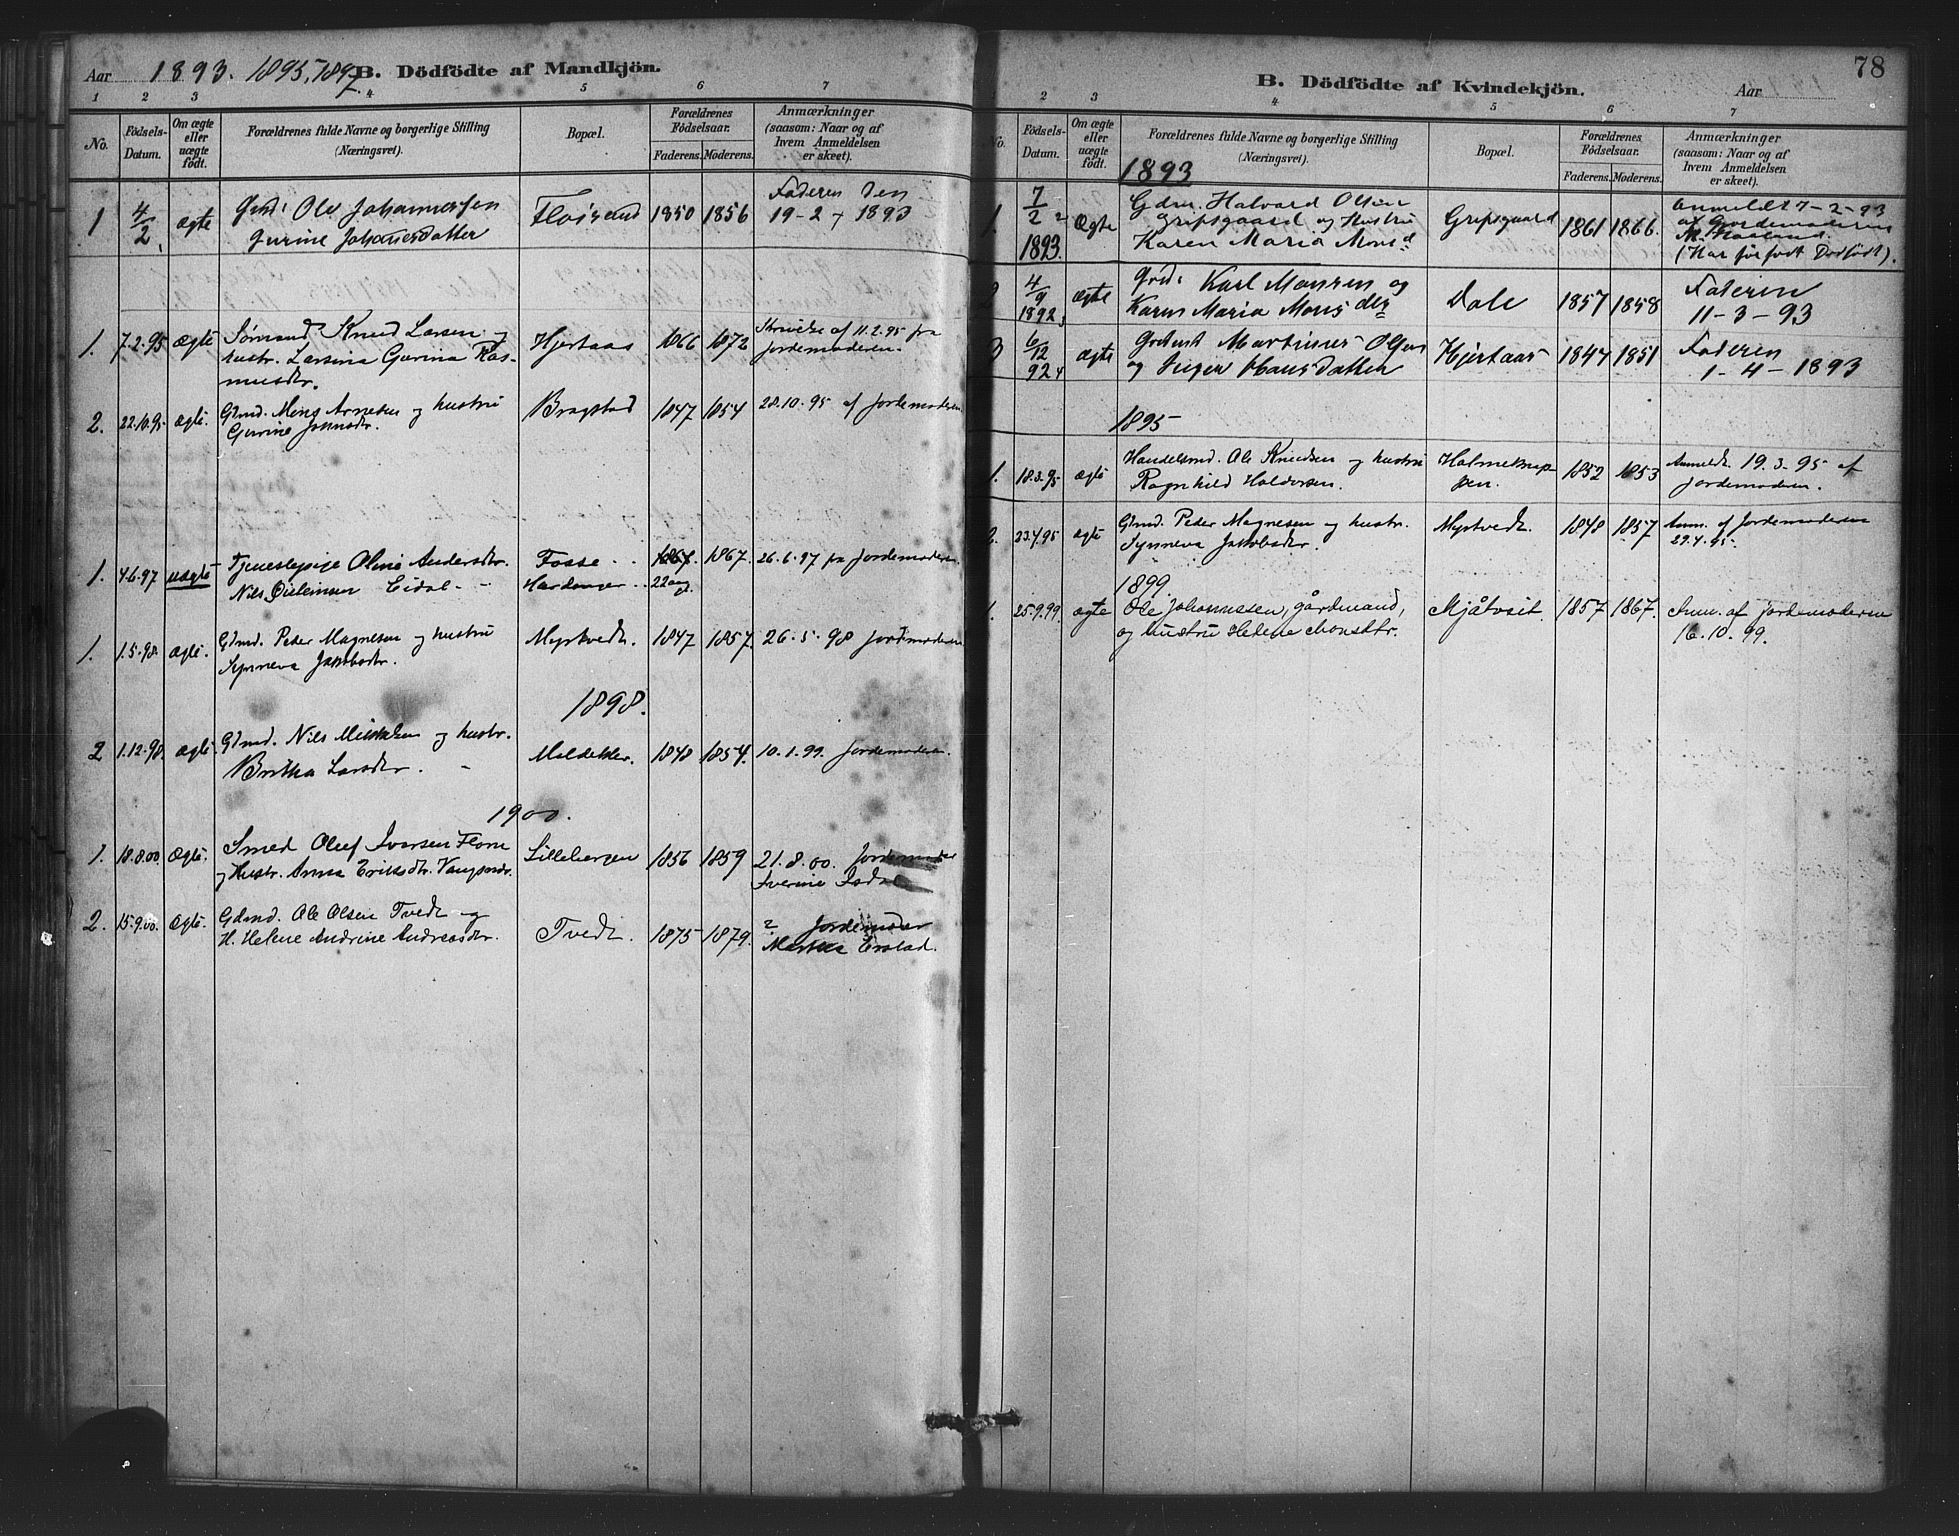 Aar 1893. 1895, 1897. B. Dödfödte af Mandkjön.
1 2 3 4 5 6 7
No. Födsels-Datum. Om ægte eller uægte födt. Forældrenes fulde Navne og borgerlige Stilling (Næringsvei). Bopæl. Forældrenes Födselsaar. Faderens. Moderens. Anmærkninger (saasom: Naar og af hvem Anmeldelsen er skeet).
1 4/2 ægte Grdb. Ole Johannessen 1850 1856 Faderen den
Gurine Johannesdatter 19-2-1893
1. 7.2.95 ægte Sömand Knud Larsen og Hjertaas 1866 1872 Skrivelse af 11.2.95 fra
hustr. Larsina Gurina Ras- Jordemoderen.
musdtr.
2. 22.10.95 ægte. Gdmd. Mons Arnesen og hustru Brogstad 1847 1854 28.10.95 af Jordemoderen
Gurine Johnsdr.
1. 4.6.97 uægte Tjenestepige Oline Andersdtr. Fosse 1867. 26.6.97 fra Jordemoderen
Nils Eidal Hardanger 22 aug.
1. 1.5.98. ægte. Gdmd. Peder Magnesen og hustru Myrtvedt. 1847 1857. 26.5.98 Jordemoderen
Synneva Jakobsdtr.
1898.
2 1.12.98. ægte. Gdmd. Nils og hustr. Moldekler. 1848 1854. 10.1.99. Jordemoderen.
Britha Larsdtr.
1900.
1. 18.8.00. Ægte. Smed Oluf Iversen Lillebergen 1856 1859 21.8.00. Jordemoder
og Hustr. Anna Eriksdtr. Iverine
2. 15.9.00. Ægte. Gdmd. Ole Olsen Tvedt og Tvedt. 1875 1879. ? Jordemoder
H. Helene Andrine Andreasdtr. Erstad.
B. Dödfödte af Kvindekjön. Aar 78
2 3 4 5 6 7
No. Födsels-Datum. Om ægte eller uægte födt. Forældrenes fulde Navne og borgerlige Stilling (Næringsvei). Bopæl. Forældrenes Födselsaar. Faderens. Moderens. Anmærkninger (saasom: Naar og af hvem Anmeldelsen er skeet).
1893
1. 7/2 1893. Ægte Gdm. Halvard Olsen Gripsgaard 1861 1866. Anmeldt 7-2-93
Gripsgaard og Hustru af Jordemoderen
Karen Maria Monsd (Har før født Dödfödt).
2 4/9 1892 ægte Grdb. Karl Monsen og Dale 1857 1858 Faderen
Karen Maria Mons dtr 11-3-93
3 6/12 92 ægte Martinus Olsen Hjertaas 1847 1851 Faderen
og Hansdatter 1-4-1893
1895
1. 18.3.95 ægte Handelsmd. Ole Knudsen og hustru 1852 1853 Anmeldt 19.3.95 af
Ragnhild Haldorsen. Jordemoderen.
2. 23.4.95 ægte Gdmd. Peder Magnesen og hustr. Myrtvedt. 1848 1857 Anm. af Jordemoderen
Synneva Jakobsdtr. 29.4.95.
1899.
1. 25.9.99. ægte Ole Johannessen, gårdmand, Mjåtveit. 1857 1867. Anm. af jordemoderen
og hustru Helene Monsdtr. 16.10.99.